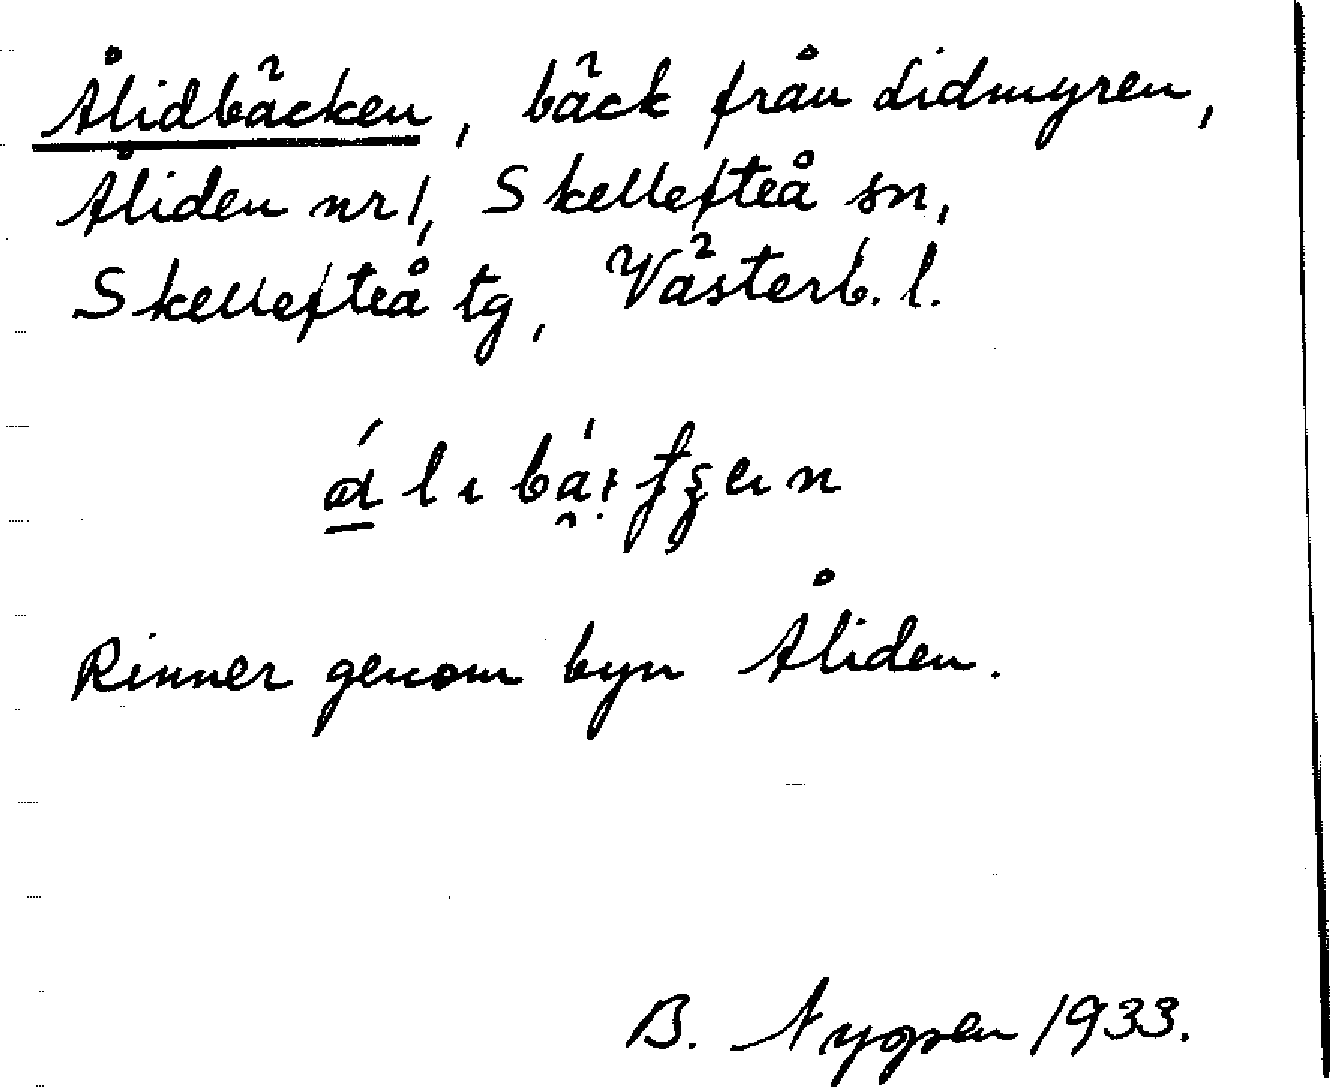 Ålidbäcken, bäck från Lidmyren,
Åliden nr 1, Skellefteå sn,
Skellefteå tg, Västerb. l.
Rinner genom byn Åliden.
B. Nygren 1933.